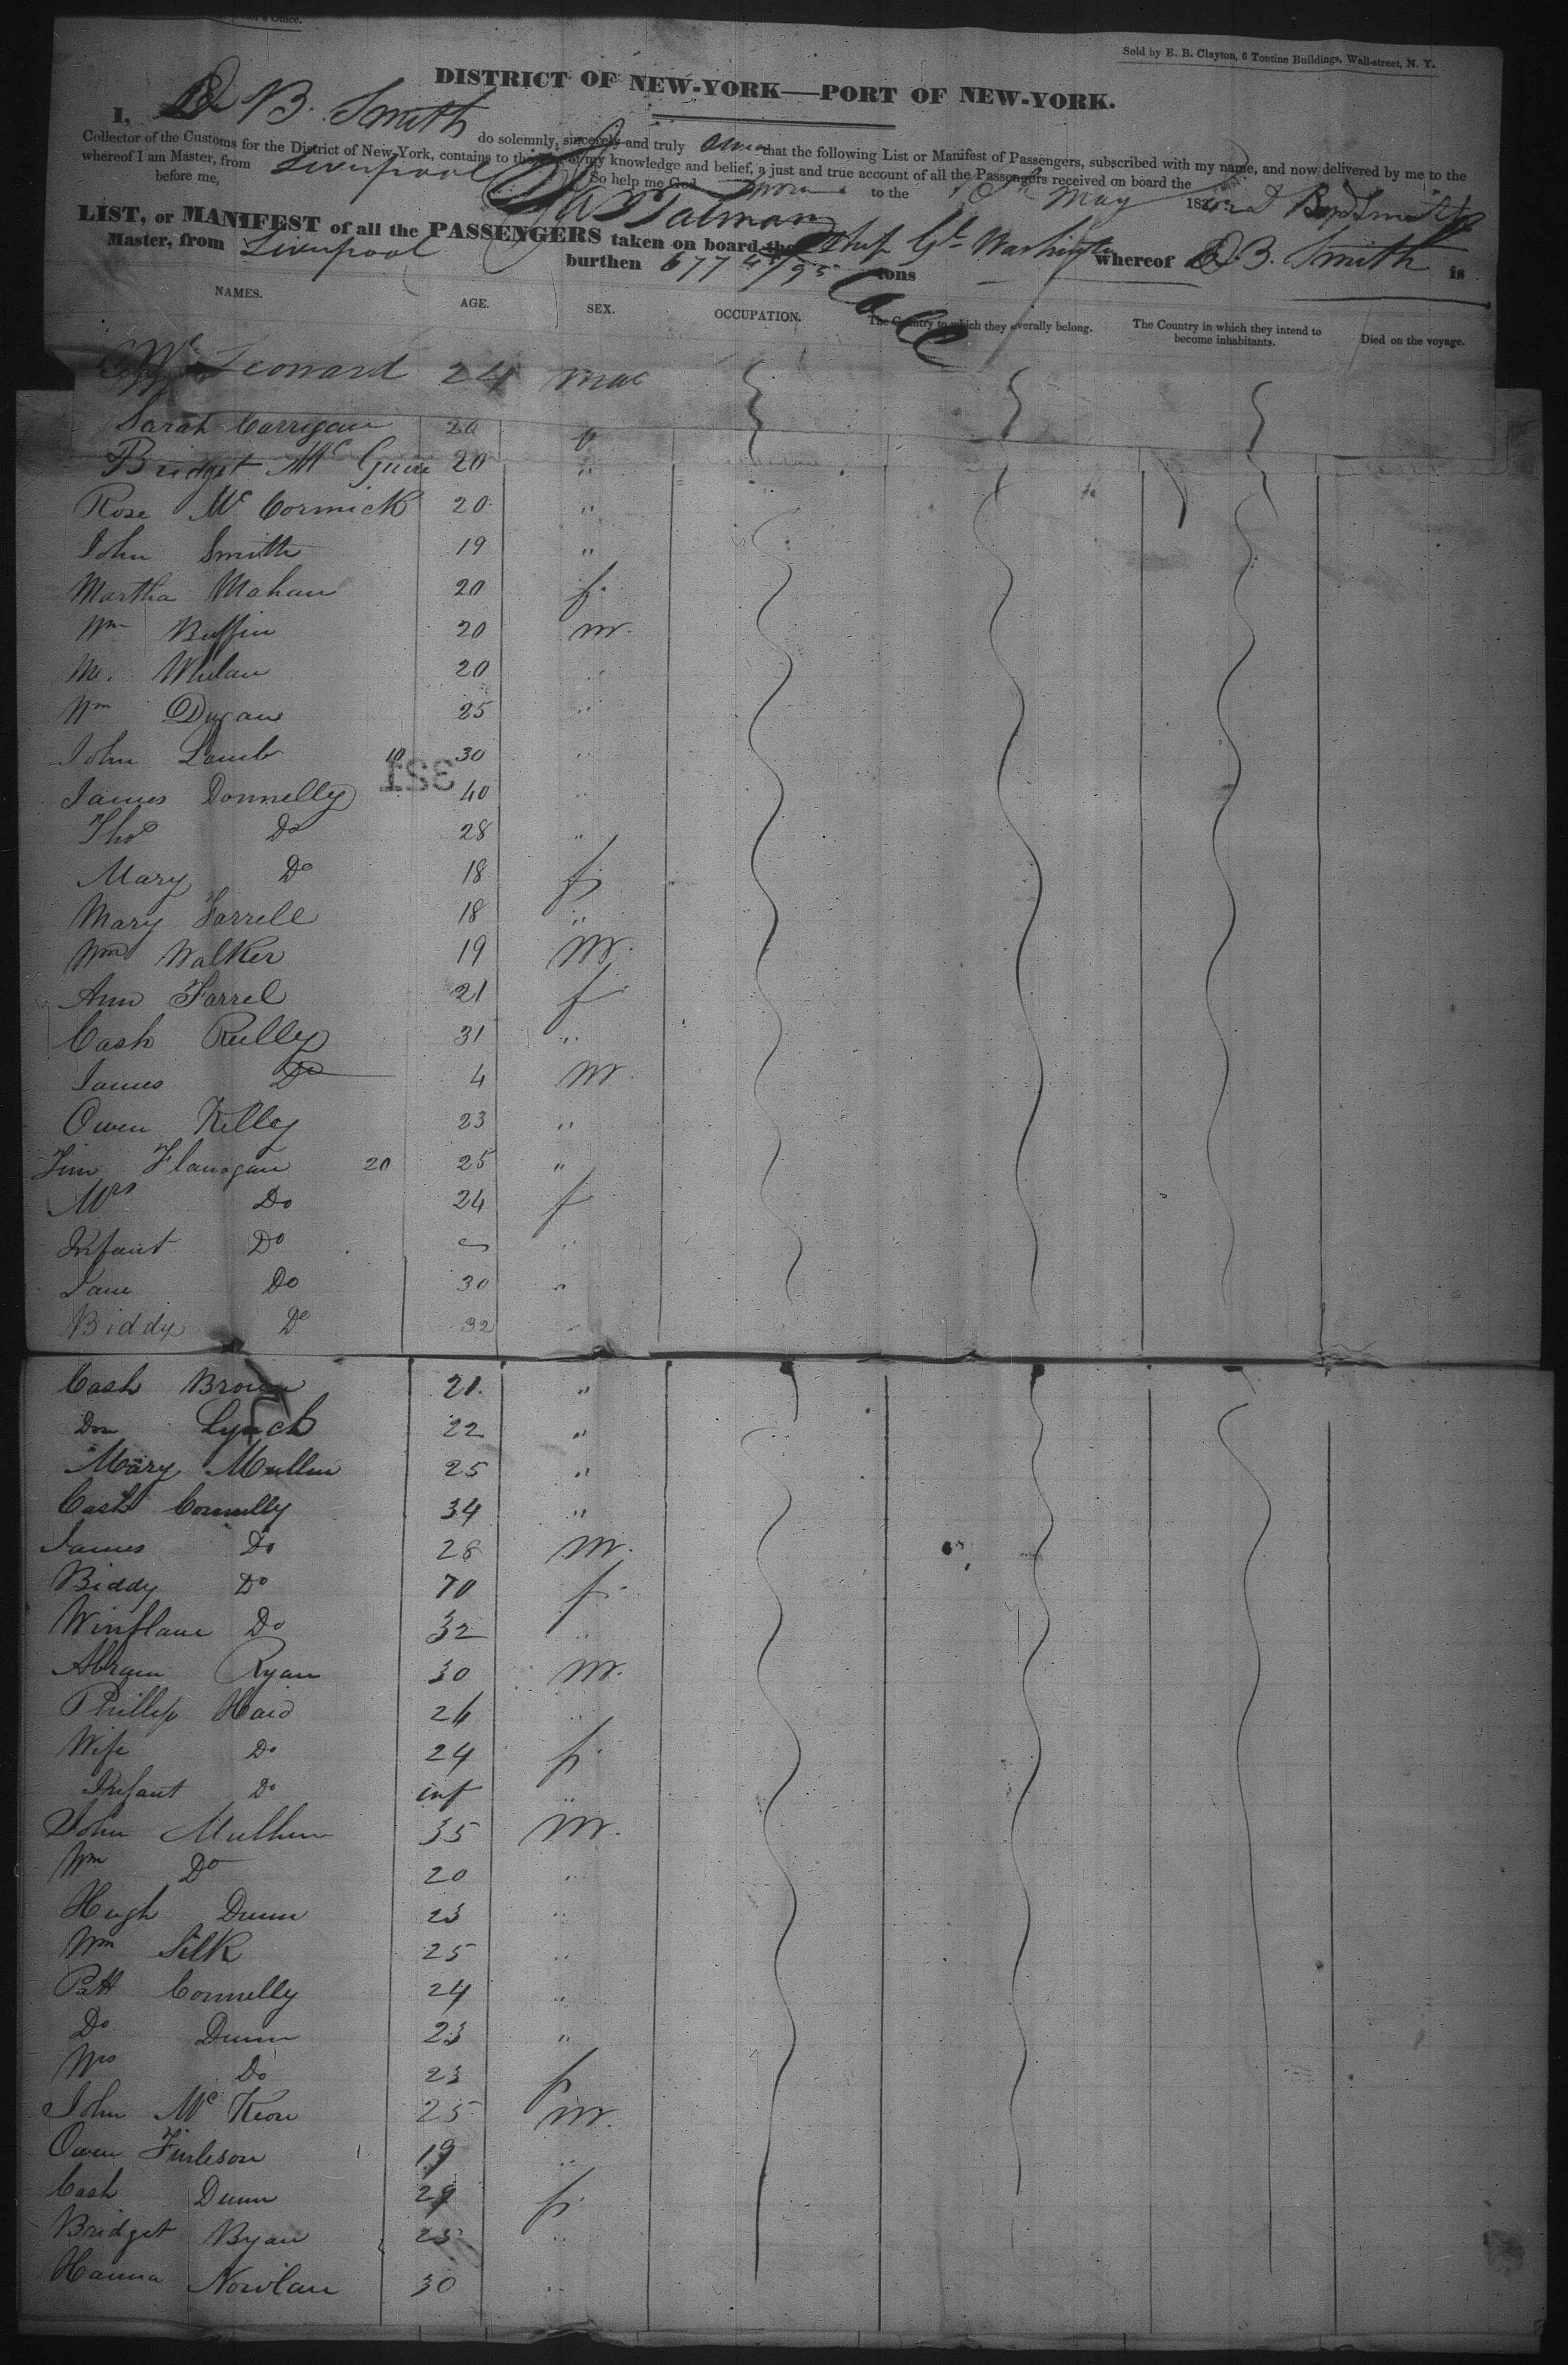 Sold by E. B. Clayton, 6 Tontine Buildings, Wall-street, N. Y.
DISTRICT OF NEW-YORK—PORT OF NEW-YORK.
I, D B. Smith do solemnly, sincerely and truly that the following List or Manifest of Passengers, subscribed with my name, and now delivered by me to the
Collector of the Customs for the District of New-York, contains to the of my knowledge and belief, a just and true account of all the Passengers received on board the
whereof I am Master, from Liverpool So help me God.
before me, to the 18th May 18
LIST, or MANIFEST of all the PASSENGERS taken on board the Ship Washington whereof D. B. Smith is
Master, from Liverpool burthen 677 4/95 tons
NAMES. AGE. SEX. OCCUPATION. The Country to which they severally belong. The Country in which they intend to become inhabitants. Died on the voyage.
Leonard 24
Sarah Carrigan 20
Bridget Mc Guire 20 "
Rose Mc Cormick 20 "
John Smith 19 "
Martha Mahan 20 f.
Wm Buffin 20 m.
M. Whelan 20 "
Wm Dugan 25 "
John Lamb 10 30 "
321
James Donnelly 40 "
Thos Do 28 "
Mary Do 18 f
Mary Farrell 18 "
Wm Walker 19 m.
Ann Farrel 21 f
Cash Reilly 31 "
James Do 4 m
Owen Kelley 23 "
Jim Flanogan 20 25 "
Mrs Do 24 f
Infant Do "
Jane Do 30 "
Biddy Do 32 "
Cash Brown 21. "
Lynch 22 "
Mary Mullin 25 "
Cash Connelly 34 "
James Do 28 m.
Biddy Do 70 f
Do 32 "
Abram Ryan 30 m.
Phillip Haid 26 "
Wife Do 24 f
Infant Do inf "
John Mullin 35 m.
Wm Do 20 "
Hugh Dunn 23 "
Wm Silk 25 "
Patt Connelly 24 "
Do Dunn 23 "
Mrs Do 23 f
John Mc Keon 25 m.
Owen Finleson 19 "
Cash Dunn 29 f
Bridget Byan 25 "
Hanna Nowlan 30 "